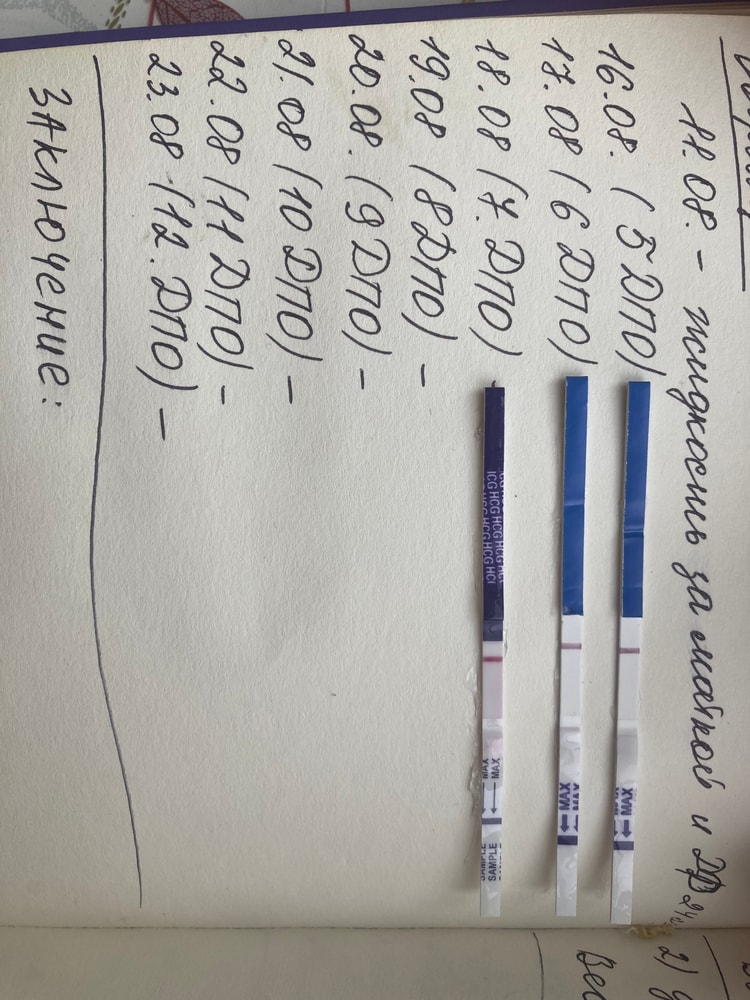 11.08. - жидкость за маткой и ДФ 24
16.08. (5 ДПО)
17.08 (6 ДПО)
18.08 (7. ДПО)
19.08 (8 ДПО) -
20.08. (9 ДПО) -
21.08 (10 ДПО) -
22.08 (11 ДПО) -
23.08 (12. ДПО) -
ЗАКЛЮЧЕНИЕ:
MAX
MAX
MAX
HCG HCG HCG HCG
MAX
MAX
SAMPLE
SAMPLE
2)